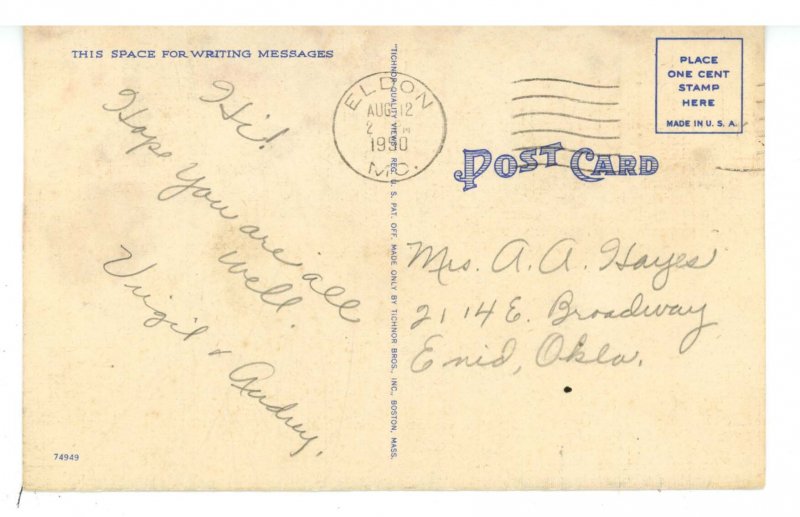 THIS SPACE FOR WRITING MESSAGES
Hi!
Hope you are all
well.
Virgil & Audrey.
74949
"TICHNOR QUALITY VIEWS," REG. U. S. PAT. OFF. MADE ONLY BY TICHNOR BROS., INC., BOSTON, MASS.
ELDON
AUG 12
2
1950
MO.
PLACE
ONE CENT
STAMP
HERE
MADE IN U. S. A.
POST CARD
Mrs. A. A. Hayes
2114 E. Broadway
Enid, Okla.